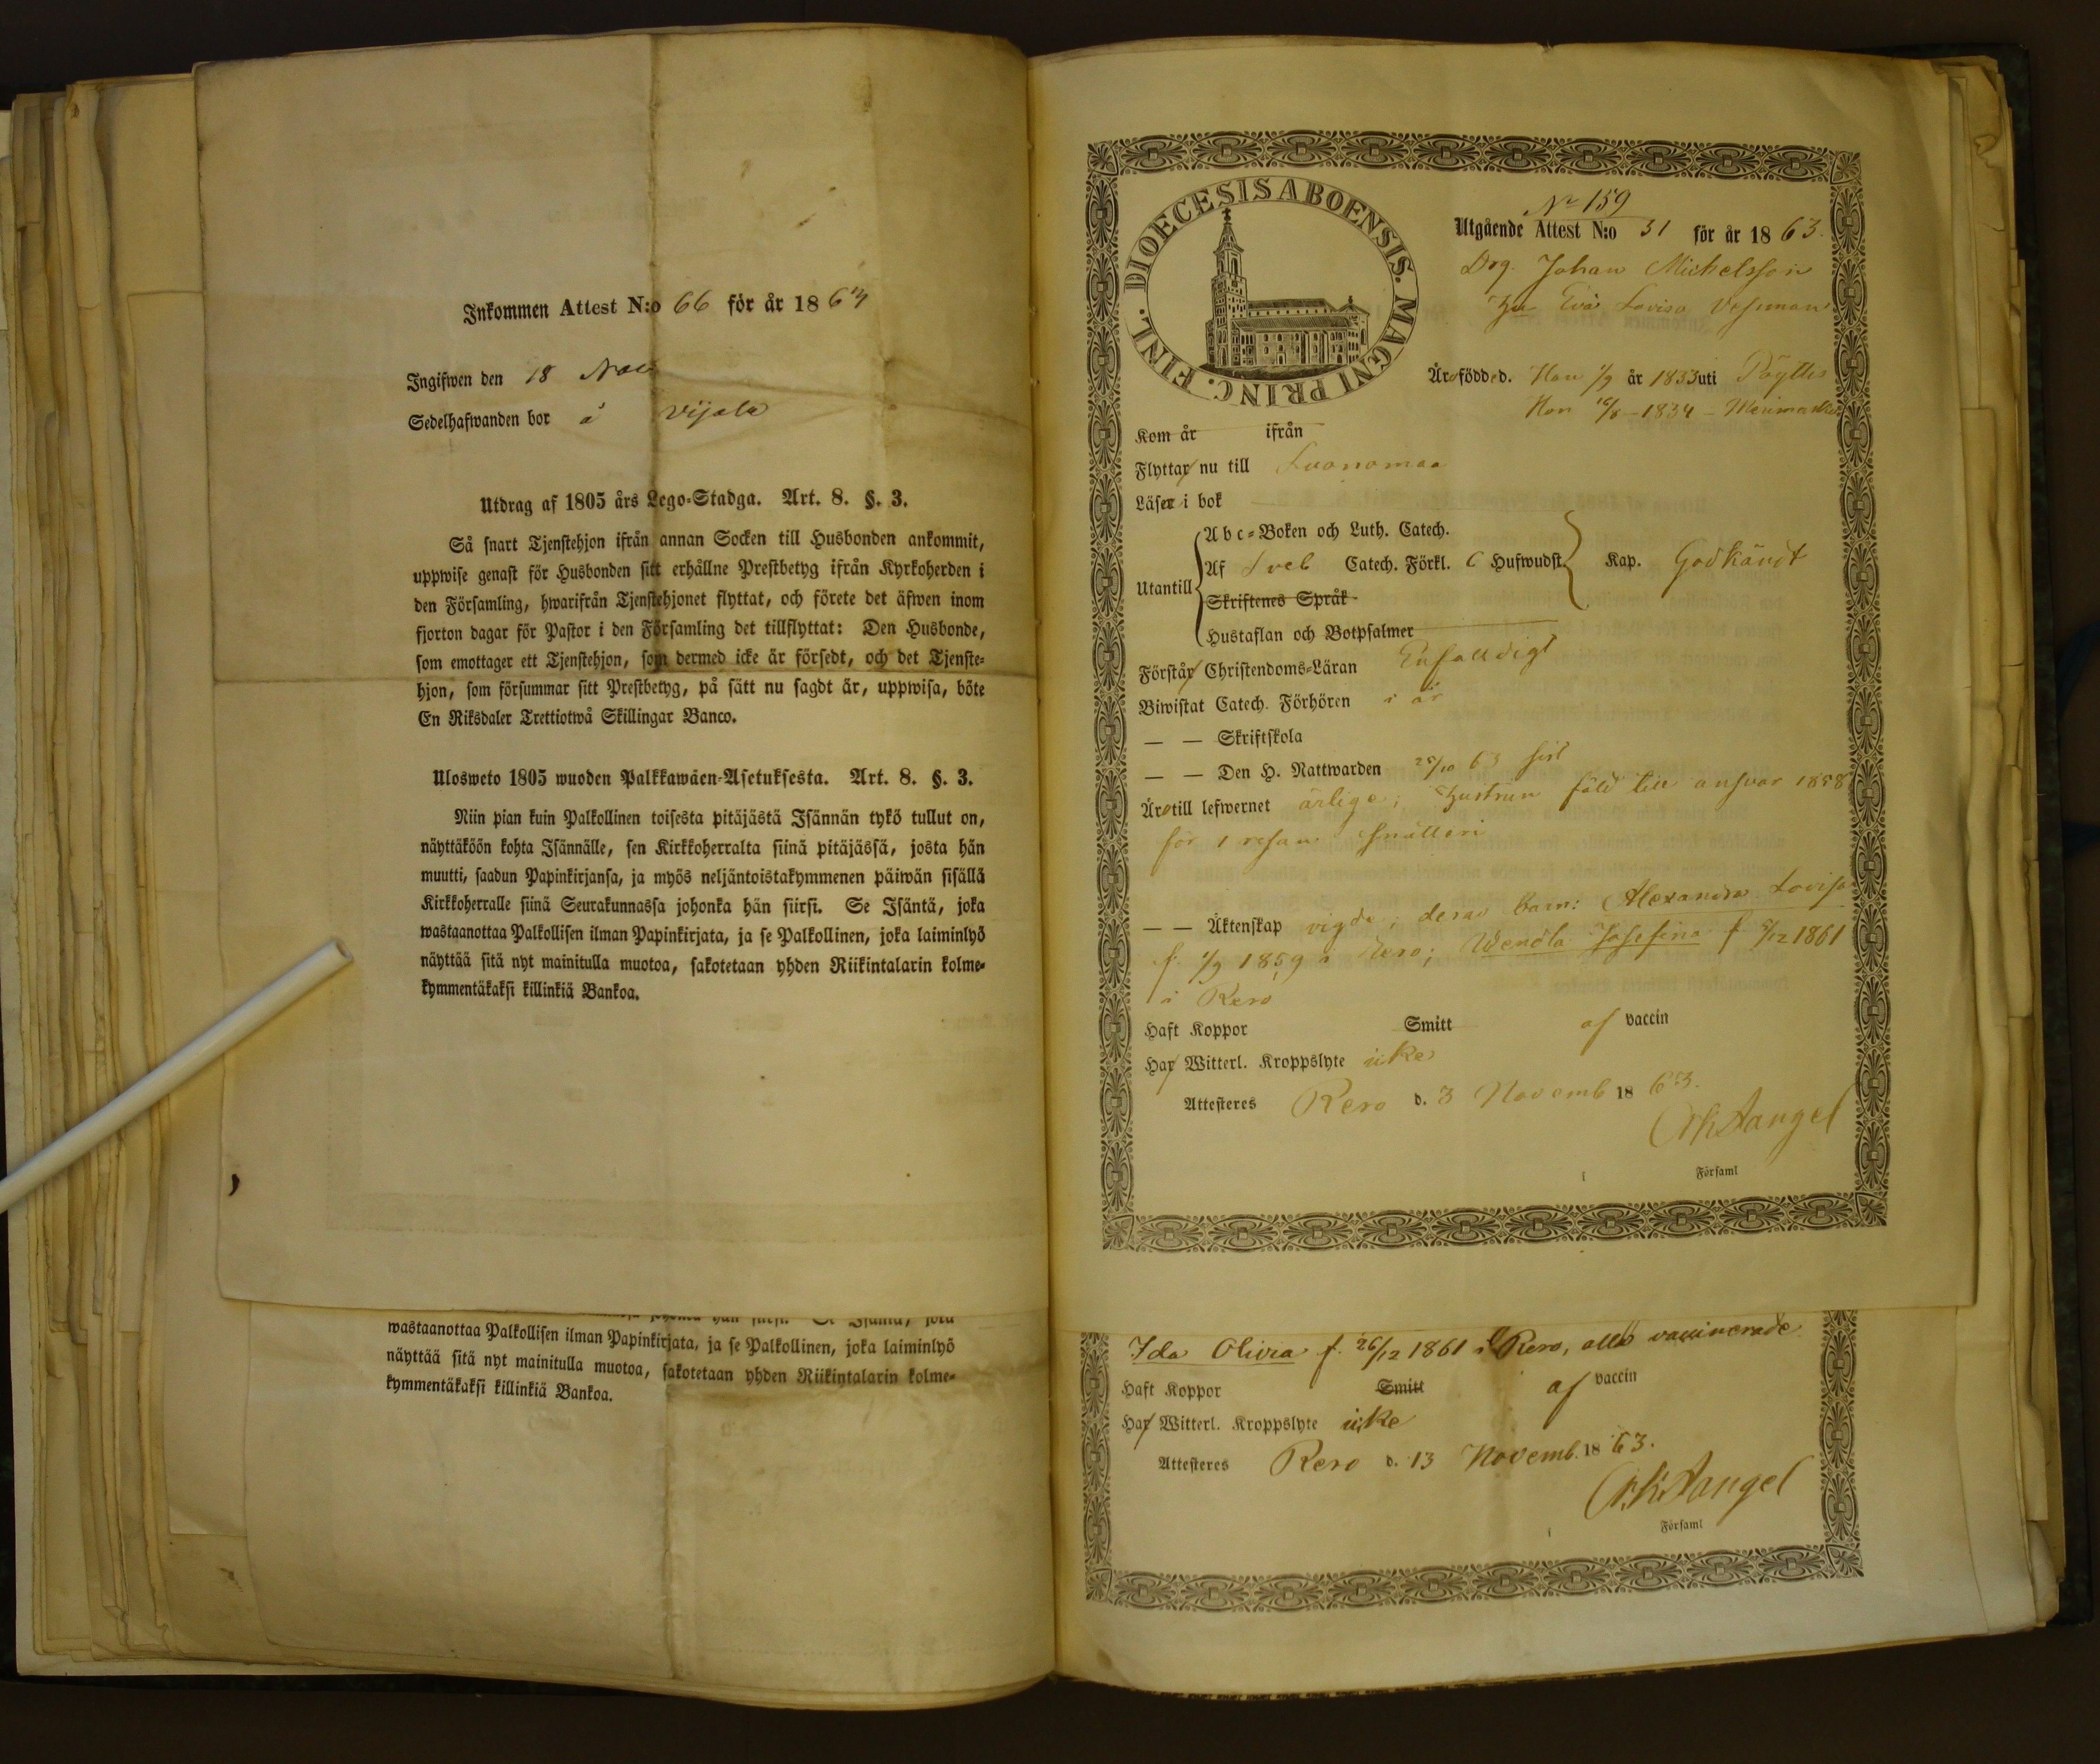 Inkommen Attest N:o 66 för år 1863
Ingifwen den 18 Nov
Sedelhafwanden bor å Vijala
Utdrag af 1805 års Lego-Stadga. Art. 8. §. 3.
Så snart Tjenstehjon ifrån annan Socken till Husbonden ankommit,
uppwise genast för Husbonden sitt erhållne Prestbetyg ifrån Kyrkoherden i
den Församling, hwarifrån Tjenstehjonet flyttat, och förete det äfwen inom
fjorton dagar för Pastor i den Församling det tillflyttat: Den Husbonde,
som emottager ett Tjenstehjon, som dermed icke är försedt, och det Tjenste-
hjon, som försummar sitt Prestbetyg, på sätt nu sagdt är, uppwisa, böte
En Riksdaler Trettiotwå Skillingar Banco.
Ulosweto 1805 wuoden Palkkawäen-Asetuksesta. Art. 8. §. 3.
Niin pian kuin Palkollinen toisesta pitäjästä Isännän tykö tullut on,
näyttäköön kohta Isännälle, sen Kirkkoherralta siinä pitäjässä, josta hän
muutti, saadun Papinkirjansa, ja myös neljäntoistakymmenen päiwän sisällä
Kirkkoherralle siinä Seurakunnassa johonka hän siirsi. Se Isäntä, joka
wastaanottaa Palkollisen ilman Papinkirjata, ja se Palkollinen, joka laiminlyö
näyttää sitä nyt mainitulla muotoa, sakotetaan yhden Riikintalarin kolme-
kymmentäkaksi killinkiä Bankoa.
wastaanottaa Palkollisen ilman Papinkirjata, ja se Palkollinen, joka laiminlyö
näyttää sitä nyt mainitulla muotoa, sakotetaan yhden Riikintalarin kolme-
kymmentäkaksi killinkiä Bankoa.
DIOECESIS ABOENSIS. MAGNI PRINC. FINL.
No 159
Utgående Attest N:o 31 för år 1863.
Drg. Johan Michelsson
Hu Eva Lovisa Vesman
Äro födde d. Han 1/9 år 1833 uti Pöyttis
Hon 16/8 - 1834 - Merimasku
Kom år ifrån
Flyttar nu till Luonomaa
Läser i bok
Utantill
Abc-Boken och Luth. Catech.
Af Sveb Catech. Förkl. C Hufwudst. Kap. Godkändt
Skriftenes Språk
Hustaflan och Botpsalmer
Förstår Christendoms-Läran Enfalldigt
Biwistat Catech. Förhören i år
— — Skriftskola
— — Den H. Nattwarden 25/10 63 sist
Äro till lefwernet ärlige; hustrun fäld till ansvar 1858
för 1 resan snatteri
— — Äktenskap vigde; deras barn: Alexandra Lovisa
f. 1/9 1859 i Rero; Wendla Josefina f 5/12 1861
i Rero
Haft Koppor Smitt af vaccin
Har Witterl. Kroppslyte icke
Attesteres Rero d. 3 Novemb 1863.
i Församl
Ida Olivia f. 26/12 1861 i Rero, alla vaccinerade
Haft Koppor Smitt af vaccin
Har Witterl. Kroppslyte icke
Attesteres Rero d. 13 Novemb. 1863.
i Församl